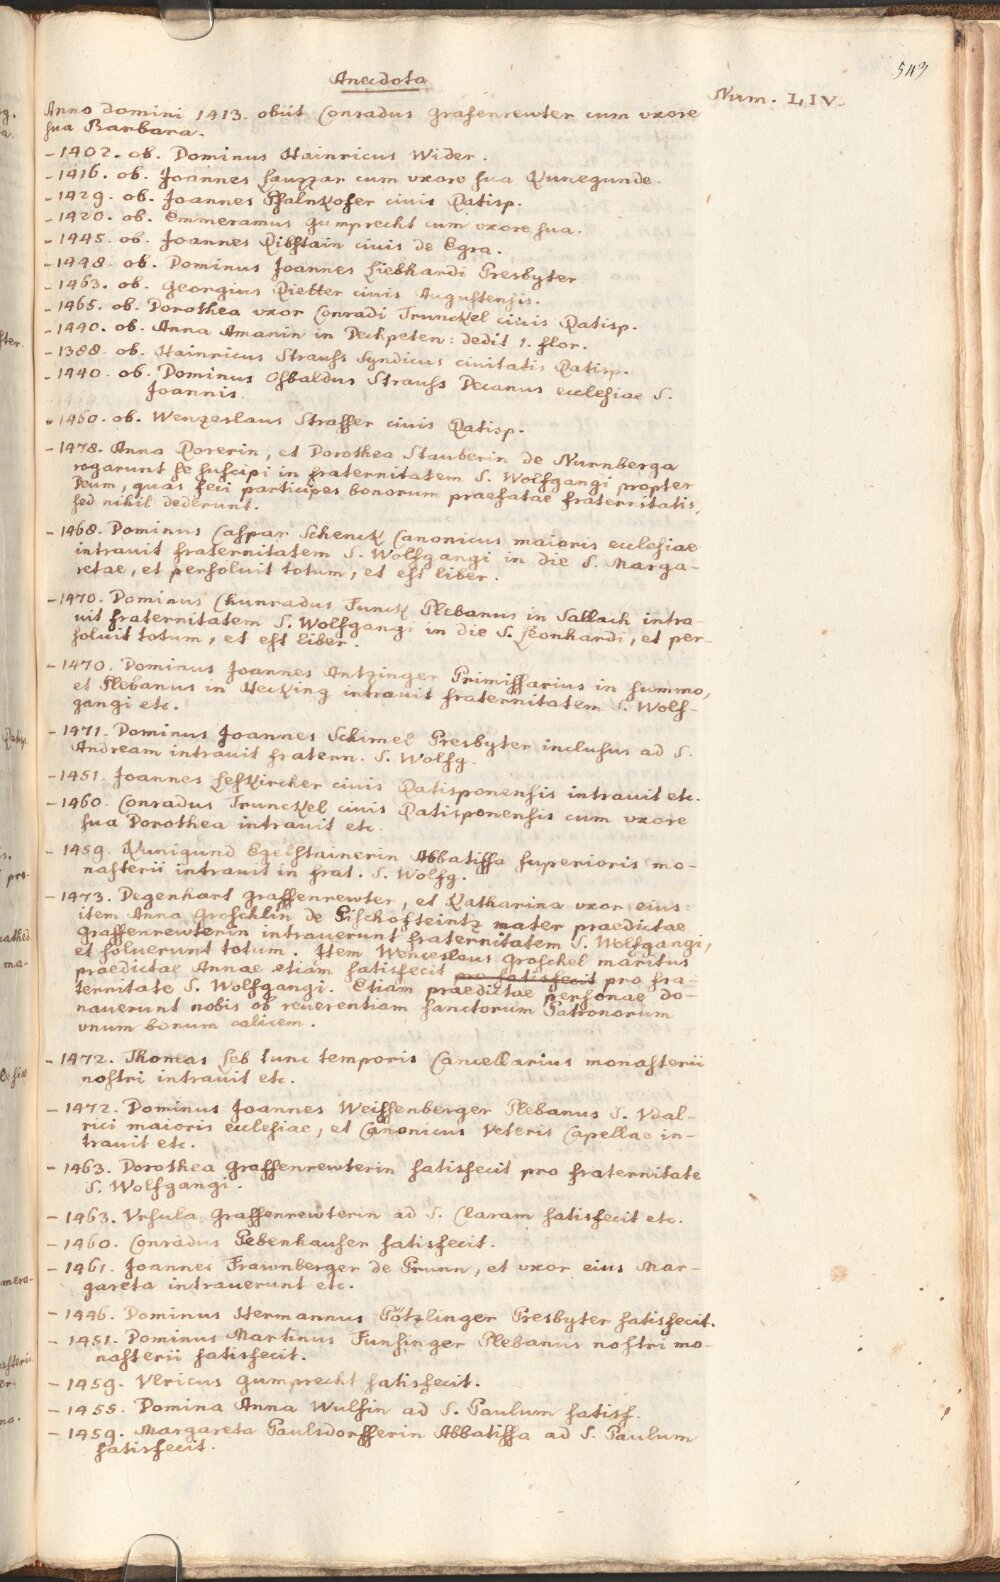 543
Anecdota
Num. LIV.
Anno Domini 1413. obiit Conradus Grafenrewter cum vxore
sua Barbara.
- 1402. ob. Dominus Hainricus Wider.
- 1416. ob. Joannes Lauzzar cum vxore sua Kunegunde.
- 1429. ob. Joannes Pfalnkofer civis Ratisp.
- 1420. ob. Emmeramus Gumprecht cum vxore sua.
- 1445. ob. Joannes Ribstain ciuis de Egra.
- 1448. ob. Dominus Joannes Liebhardi Presbyter.
- 1463. ob. Georgius Rietter ciuis Augustensis.
- 1465. ob. Dorothea vxor Conradi Trunckel ciuis Ratisp.
- 1440. ob. Anna Amanin in Dechpeten: dedit 1. flor.
- 1388. ob. Hainricus Strauss Syndicus ciuitatis Ratisp.
- 1440. ob. Dominus Osbaldus Strauss Decanus ecclesiae S.
Joannis.
- 1460. ob. Wenzeslaus Straffer ciuis Ratisp.
- 1478. Anna Rorerin, et Dorothea Stauberin de Nurnberga
rogarunt se suscipi in fraternitatem S. Wolfgangi propter
Deum, quas feci participes bonorum praefatae fraternitatis,
sed nihil dederunt.
- 1468. Dominus Caspar Schenck Canonicus maioris ecclesiae
intrauit fraternitatem S. Wolfgangi in die S. Marga-
retae, et persoluit totum, et est liber.
- 1470. Dominus Chunradus Funck Plebanus in Sallach intra-
uit fraternitatem S. Wolfgangi in die S. Leonhardi, et per-
soluit totum, et est liber.
- 1470. Dominus Joannes Antzinger Primissarius in summo,
et Plebanus in Hecking intrauit fraternitatem S. Wolf-
gangi etc.
- 1471. Dominus Joannes Schimel Presbyter inclusus ad S.
Andream intrauit fratern. S. Wolfg.
- 1451. Joannes Leskircher ciuis Ratisponensis intrauit etc.
- 1460. Conradus Trunckel ciuis Ratisponensis cum vxore
sua Dorothea intrauit etc.
- 1459. Kunigund Egelstainerin Abbatissa superioris mo-
nasterii intrauit in frat. S. Wolfg.
- 1473. Degenhart Graffenrewter, et Katharina vxor eius:
item Anna Groschlin de Pischofsteintz mater praedictae
Graffenrewterin intrauerunt fraternitatem S. Wolfgangi,
et soluerunt totum. Item Wenceslaus Groschel maritus
praedictae Annae etiam satisfecit pro satisfecit pro fra-
ternitate S. Wolfgangi. Etiam praedictae personae do-
nauerunt nobis ob reuerentiam sanctorum Patronorum
vnum bonum calicem.
- 1472. Thomas Leb tunc temporis Cancellarius monasterii
nostri intrauit etc.
- 1472. Dominus Joannes Weissenberger Plebanus S. Vdal-
rici maioris ecclesiae, et Canonicus Veteris Capellae in-
trauit etc.
- 1463. Dorothea Graffenrewterin satisfecit pro fraternitate
S. Wolfgangi.
- 1463. Vrsula Graffenrewterin ad S. Claram satisfecit etc.
- 1460. Conradus Pebenhauser satisfecit.
- 1461. Joannes Frawnberger de Prunn, et vxor eius Mar-
gareta intrauerunt etc.
- 1446. Dominus Hermannus Pötzlinger Presbyter satisfecit.
- 1451. Dominus Martinus Funsinger Plebanus nostri mo-
nasterii satisfecit.
- 1459. Vlricus Gumprecht satisfecit.
- 1455. Domina Anna Wulfin ad S. Paulum satisf.
- 1459. Margareta Paulsdorfferin Abbatissa ad S. Paulum
satisfecit.